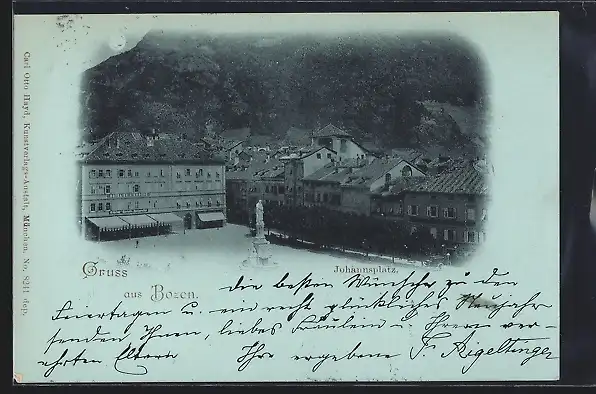 Carl Otto Hayd, Kunstverlags-Anstalt, München. No. 8241 dep.
Gruss
aus Bozen.
Johannsplatz.
die besten Wünsche zu den
Feiertagen u. ein recht glückliches Neujahr
senden Ihnen, liebes Fräulein u. Ihren ver-
ehrten Eltern Ihre ergebene F. Rigeltinger